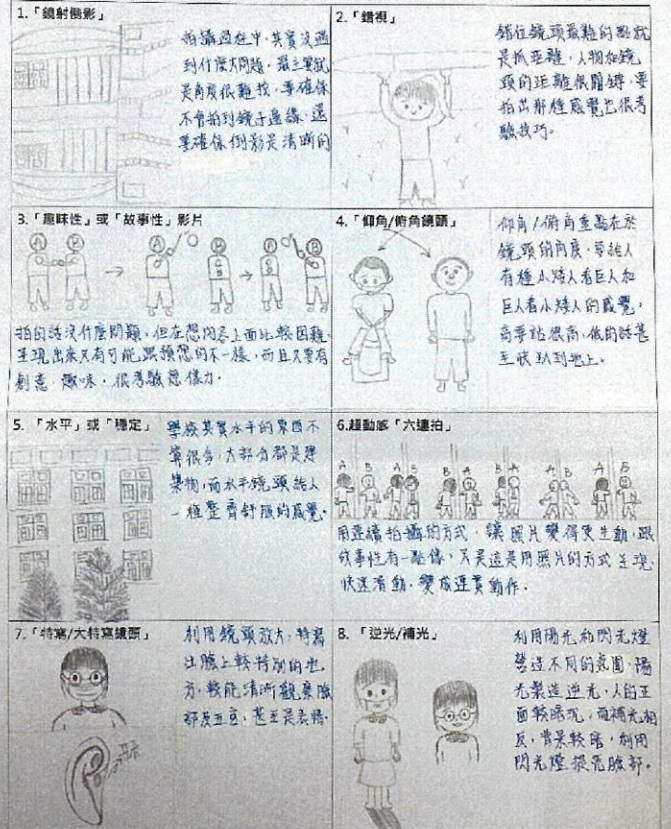 1.「鏡射倒影」
拍攝過程中，其實沒遇
到什麼大問題，最主要就
是角度很難找，要確保
不會拍到鏡子邊緣，還
要確保倒影是清晰的
2.「錯視」
錯位鏡頭最難的點就
是抓距離，人物和鏡
頭的距離很關鍵，要
拍出那種感覺也很考
驗技巧。
3.「趣味性」或「故事性」影片
A B A B A B
拍的話沒什麼問題，但在想內容上面比較困難，
呈現出來又有可能跟預想的不一樣，而且又要有
創意、趣味，很考驗想像力。
4.「仰角/俯角鏡頭」
仰角/俯角重點在於
鏡頭的角度，要給人
有種小矮人看巨人和
巨人看小矮人的感覺，
高要站很高，低的話甚
至快趴到地上。
5.「水平」或「穩定」
學校其實水平的東西不
算很多，大部分都是建
築物，而水平鏡頭給人
一種整齊舒服的感覺。
6.超動感「六連拍」
A B A B A B B A A B
用連續拍攝的方式，讓照片變得更生動，跟
故事性有一點像，只是這是用照片的方式呈現，
快速滑動，變成連貫動作。
7.「特寫/大特寫鏡頭」
利用鏡頭放大，特寫
出臉上較特別的地
方，較能清晰觀察臉
部及五官，甚至是表情。
8.「逆光/補光」
利用陽光和閃光燈
營造不同的氛圍，陽
光製造逆光，人的正
面較暗沉，而補光相
反，背景較暗，利用
閃光燈提亮臉部。